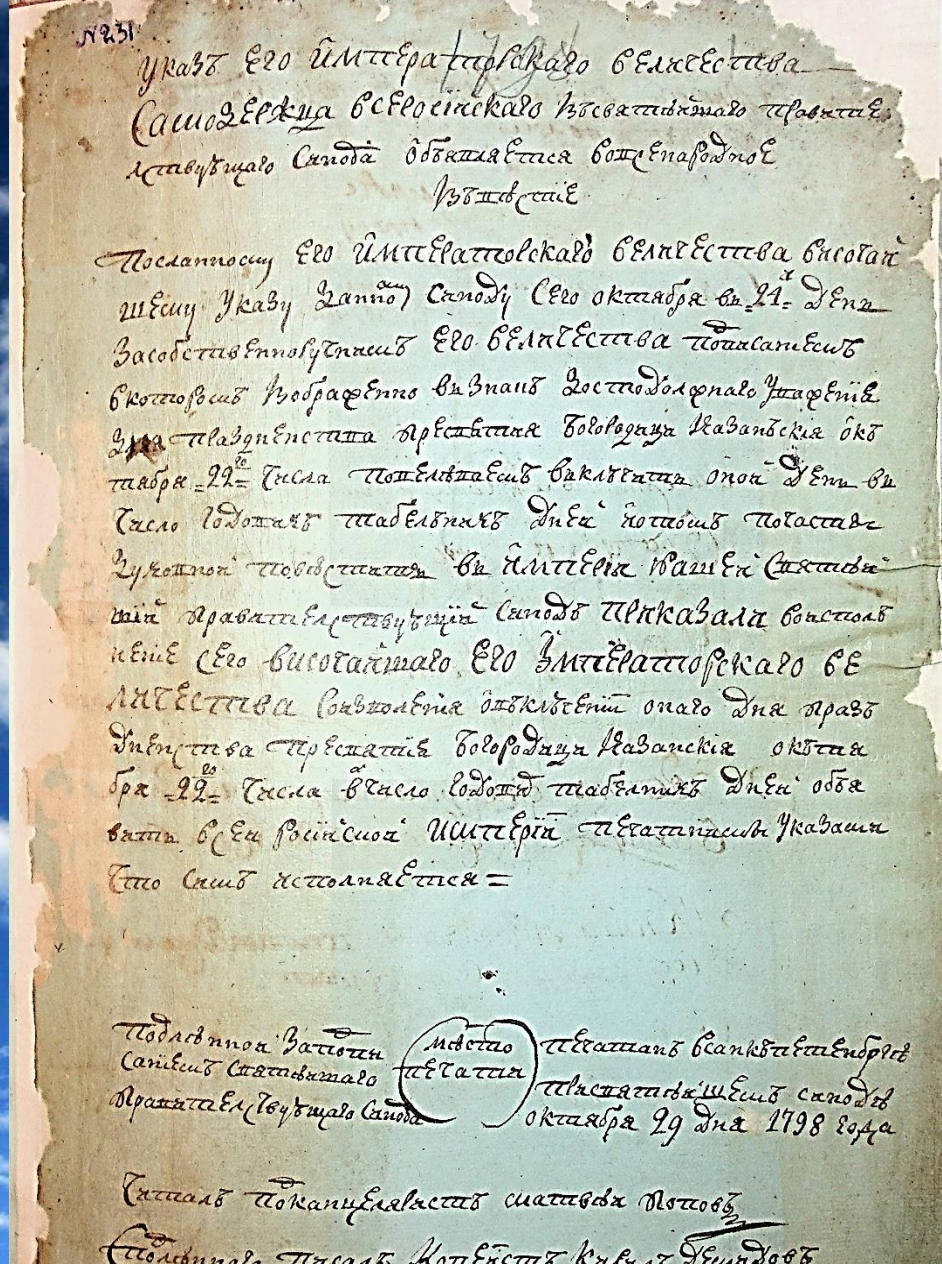 № 231
Указъ Его Императорскаго величества
Самодержца всеросiйскаго Изъ святѣйшаго правите
лствующаго Синода объявляется всенародное
Извѣстiе
По данному Его Императорскаго величества высочай
шему Указу данному Синоду сего октября въ 21 д День
За собственноручнымъ Его величества подписанiемъ
в которомъ Изображенно въ Знакъ Господолжнаго Уважения
Для празднества пресвятыя Богородицы Казанскiя ок
тября 22го Числа повелѣваемъ включить оной День въ
Число Годовыхъ табелныхъ Дней о томъ
Духовной въ Имперiи нашей Святѣй
шiй Правителствующiй Синодъ приказали во исполъ
ненiе сего высочайшаго Его Императорскаго ве
личества соизволенiя о включенiи онаго Дня праз
Дненства пресвятыя Богородицы Казанскiя октя
бря 22го Числа в Число Годовыхъ табелныхъ Дней объя
вить всей росiйской Имперiи печатными Указами
Что симъ исполняется =
Подлѣнной За подпи
санiемъ святѣйшаго
Правителствующаго Синода
мѣсто
печати
печатанъ в санктпетенбрге
при святѣйшемъ синодѣ
октября 29 Дня 1798 года
Читалъ подканцеляристъ матвѣй Поповъ
С подлѣнного писалъ Копеистъ Кирилъ Демидовъ